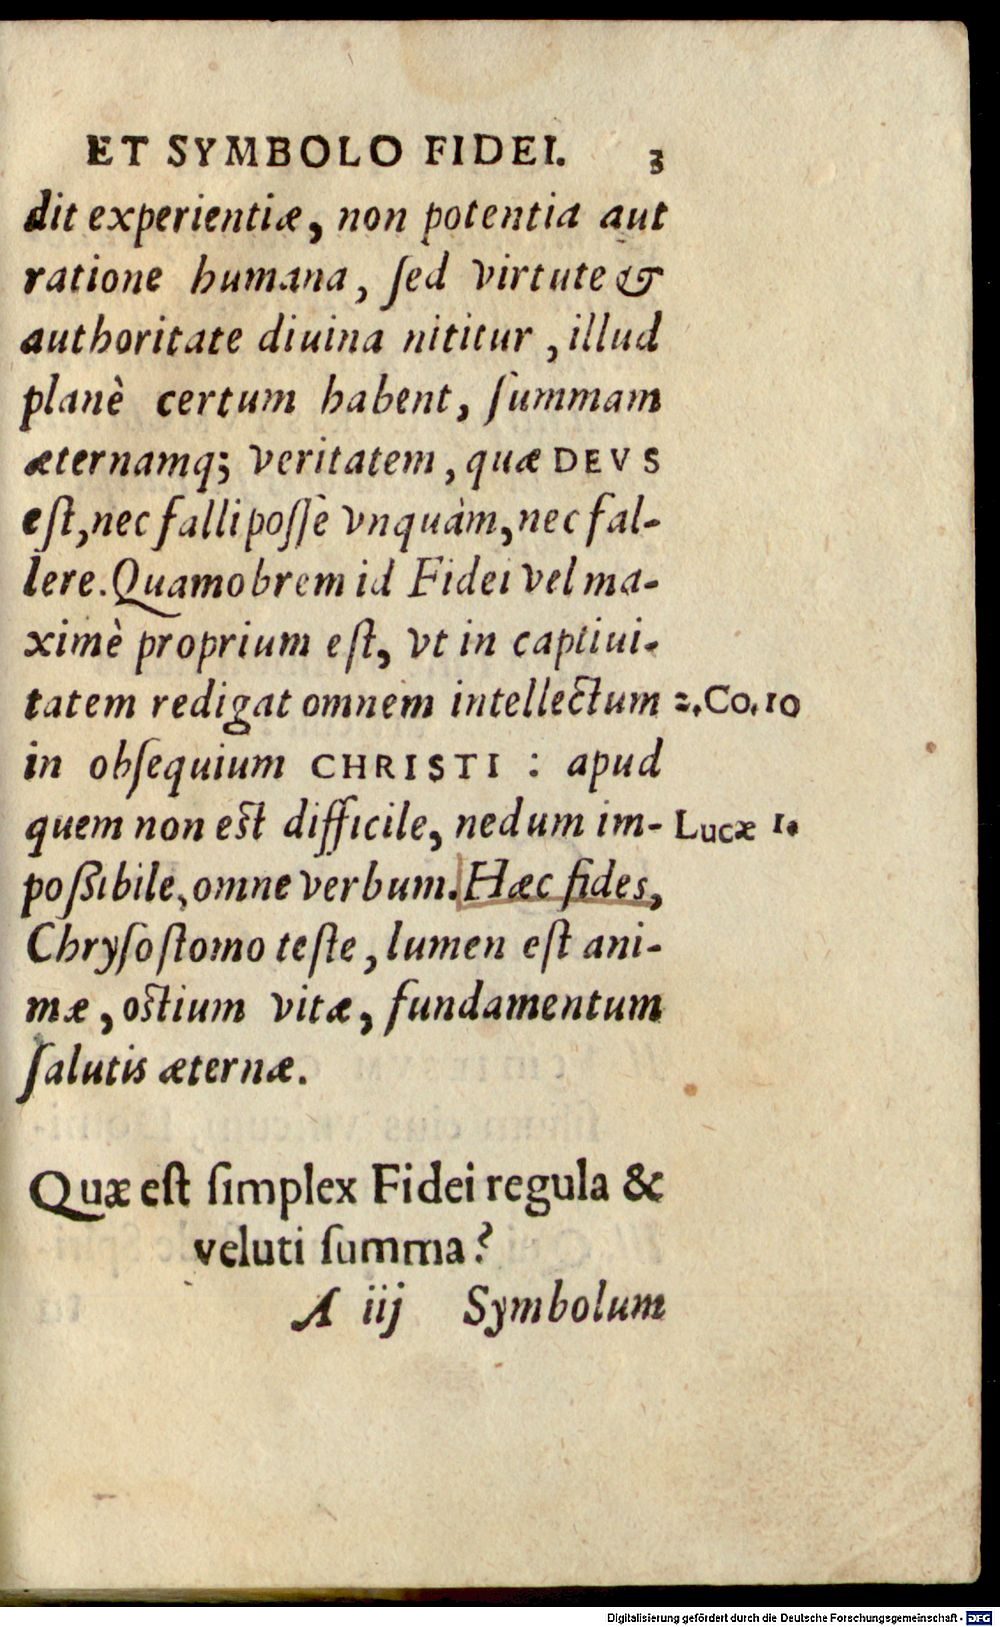 ET SYMBOLO FIDEI. 3
dit experientiæ, non potentia aut
ratione humana, ſed virtute &
authoritate diuina nititur, illud
planè certum habent, ſummam
æternamq; veritatem, quæ DEVS
eſt, nec falli poſſe vnquàm, nec fal-
lere. Quamobrem id Fidei vel ma-
ximè proprium eſt, vt in captiui-
tatem redigat omnem intellectum 2. Co. 10
in obſequium CHRISTI : apud
quem non eſt difficile, nedum im- Lucæ 1.
poſſibile, omne verbum. Hæc fides,
Chryſoſtomo teſte, lumen eſt ani-
mæ, oſtium vitæ, fundamentum
ſalutis æternæ.
Quæ eſt ſimplex Fidei regula &
veluti ſumma?
A iij Symbolum
Digitalisierung gefördert durch die Deutsche Forschungsgemeinschaft - DFG